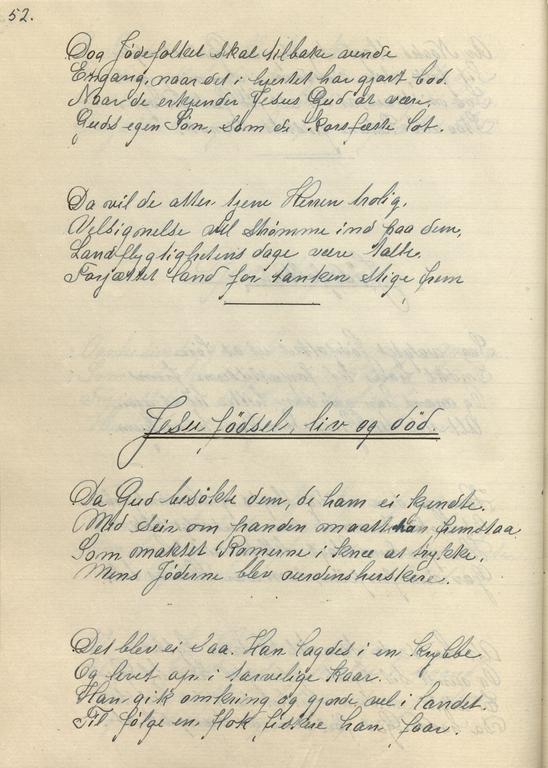 52.
Dog Jødefolket skal tilbake vende
Engang, naar det i hjertet har gjort bod.
Naar de erkjender Jesus Gud at være,
Guds egen Søn, som de korsfæste lot.
Da vil de atter tjene Herren trolig,
Velsignelse vil strømme ind paa dem,
Landflygtighetens dage være talte,
Forjættet land for tanken stige frem
Jesu fødsel, liv og død.
Da Gud besøkte dem, de ham ei kjendte.
Med seir om panden maatte han fremstaa
Som maktet Romerne i knæ at trykke,
Mens Jøderne blev verdensherskere.
Det blev ei saa. Han lagdes i en krybbe
Og levet op i tarvelige kaar.
Han gik omkring og gjorde vel i landet.
Til følge en flok fiskere han faar.